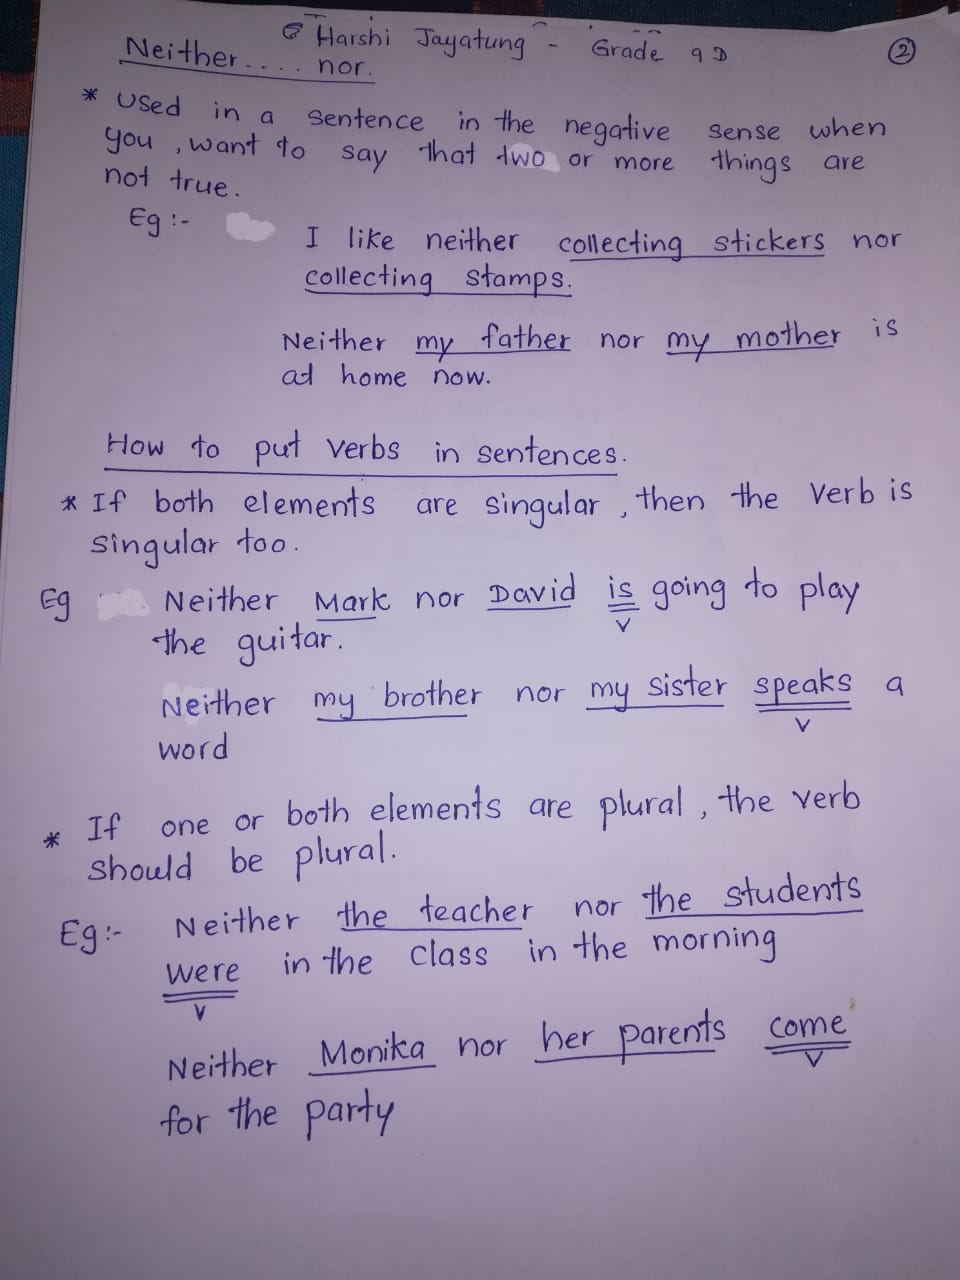 Harshi Jayatung - Grade 9 D
2
Neither.... nor.
* Used in a sentence in the negative sense when
you, want to say that two or more things are
not true.
Eg:-
I like neither collecting stickers nor
collecting stamps.
Neither my father nor my mother is
at home now.
How to put verbs in sentences.
* If both elements are singular, then the verb is
singular too.
Eg Neither Mark nor David is going to play
V
the guitar.
Neither my brother nor my sister speaks a
V
word
* If one or both elements are plural, the verb
should be plural.
Eg:- Neither the teacher nor the students
were in the class in the morning
V
Neither Monika nor her parents come
V
for the party